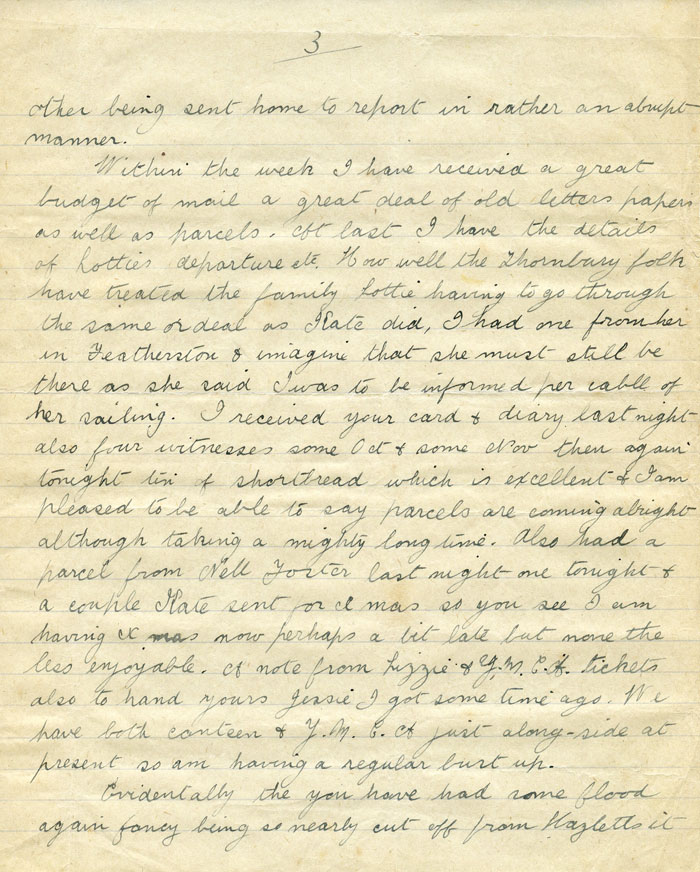 3
other being sent home to report in rather an abrupt
manner.
Within the week I have received a great
budget of mail a great deal of old letters papers
as well as parcels. At last I have the details
of Lotties departure etc. How well the Thornbury folk
have treated the family Lottie having to go through
the same ordeal as Kate did, I had one from her
in Featherston & imagine that she must still be
there as she said I was to be informed per cabll of
her sailing. I received your card & diary last night
also four witnesses some Oct & some Nov then again
tonight tin of shortbread which is excellent & I am
pleased to be able to say parcels are coming alright
although taking a mighty long time. Also had a
parcel from Nell Foster last night one tonight &
a couple Kate sent for X mas so you see I am
having X mas now perhaps a bit late but none the
less enjoyable. A note from Lizzie & Y.M.C.A. tickets
also to hand yours Jessie I got some time ago. We
have both canteen & Y.M.C.A just along-side at
present so am having a regular bust up.
Evidentally the you have had some flood
again fancy being so nearly cut off from Hazletts it